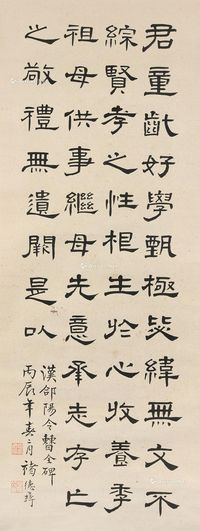 君童齔好學甄極毖緯無文不
綜賢孝之性根生於心收養季
祖母供事繼母先意承志存亡
之敬禮無遺闕是以
漢郃陽令曹全碑
丙辰年 月褚德彝